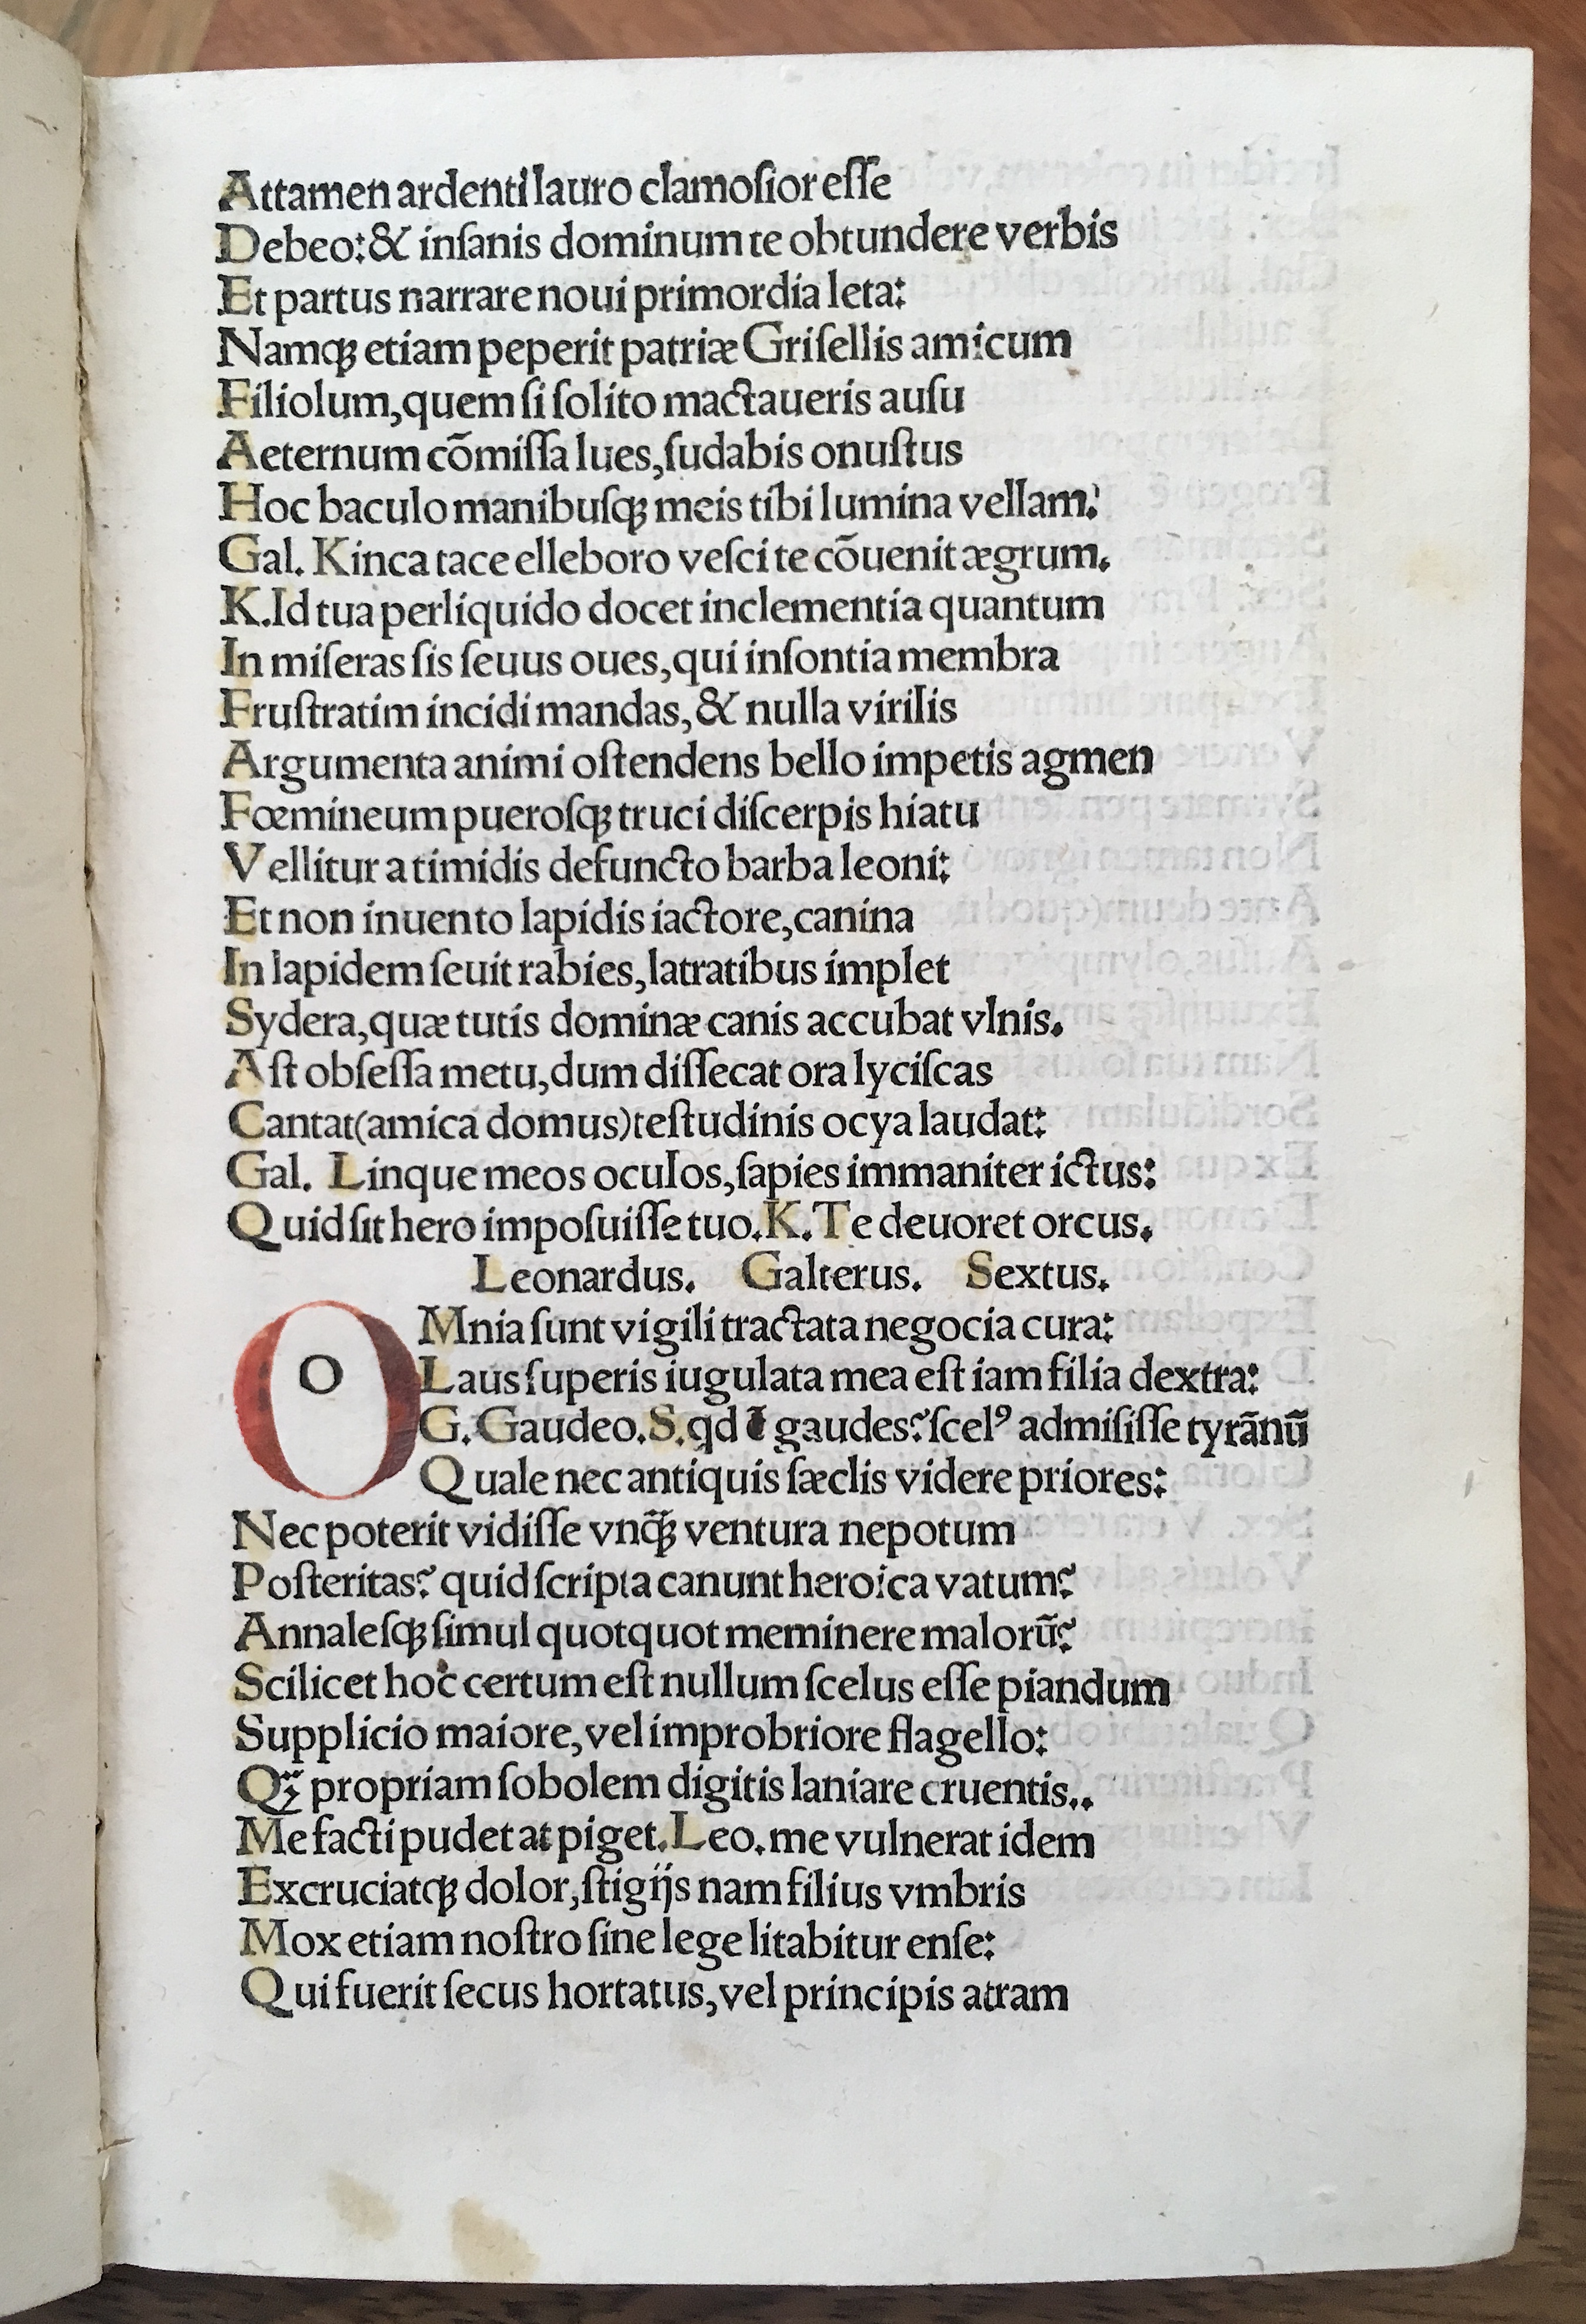 Attamen ardenti lauro clamoſior eſſe
Debeo: & inſanis dominum te obtundere verbis
Et partus narrare noui primordia leta:
Namqꝫ etiam peperit patriæ Griſellis amicum
Filiolum, quem ſi ſolito mactaueris auſu
Aeternum cōmiſſa lues, ſudabis onuſtus
Hoc baculo manibuſqꝫ meis tibi lumina vellam:
Gal. Kinca tace elleboro veſci te cōuenit ægrum.
K. Id tua perliquido docet inclementia quantum
In miſeras ſis ſeuus oues, qui inſontia membra
Fruſtratim incidi mandas, & nulla virilis
Argumenta animi oſtendens bello impetis agmen
Fœmineum pueroſqꝫ truci diſcerpis hiatu
Vellitur a timidis defuncto barba leoni:
Et non inuento lapidis iactore, canina
In lapidem ſeuit rabies, latratibus implet
Sydera, quæ tutis dominæ canis accubat vlnis.
Aſt obſeſſa metu, dum diſſecat ora lyciſcas
Cantat (amica domus) teſtudinis ocya laudat:
Gal. Linque meos oculos, ſapies immaniter ictus:
Quid ſit hero impoſuiſſe tuo. K. Te deuoret orcus.
Leonardus. Galterus. Sextus.
oMnia ſunt vigili tractata negocia cura:
Laus ſuperis iugulata mea eſt iam filia dextra:
G. Gaudeo. S. qd gaudes? ſcelꝰ admiſiſſe tyrānū
Quale nec antiquis ſæclis videre priores:
Nec poterit vidiſſe vnq̄ꝫ ventura nepotum
Poſteritas? quid ſcripta canunt heroica vatum?
Annaleſqꝫ ſimul quotquot meminere malorū?
Scilicet hoc certum eſt nullum ſcelus eſſe piandum
Supplicio maiore, vel improbriore flagello:
Qꝫ̄ propriam ſobolem digitis laniare cruentis..
Me facti pudet at piget. Leo. me vulnerat idem
Excruciatqꝫ dolor, ſtigijs nam filius vmbris
Mox etiam noſtro ſine lege litabitur enſe:
Qui fuerit ſecus hortatus, vel principis atram